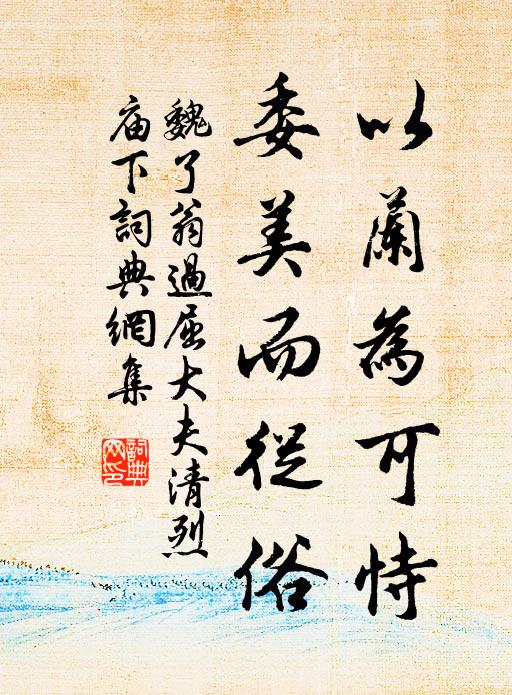 以蘭為可恃
委美而從俗
魏了翁過屈大夫清烈
庙下詞典網集
詞典
网印